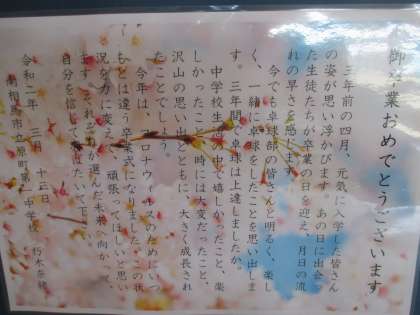 御卒業おめでとうございます
三年前の四月、元気に入学した皆さん
の姿が思い浮かびます。あの日に出会っ
た生徒たちが卒業の日を迎え、月日の流
れの早さを感じます。
今でも卓球部の皆さんと明るく、楽し
く、一緒に卓球をしたことを思い出しま
す。三年間で卓球は上達しましたか。
中学校生活の中で嬉しかったこと、楽
しかったこと、時には大変だったこと、
沢山の思い出とともに、大きく成長され
たことでしょう。
今年は、コロナウィルスのためにいつ
もとは違う卒業式になりました。この状
況を力に変えて、頑張ってほしいと思い
ます。それぞれが選んだ未来へ向かって、
自分を信じて羽ばたいて下さい。
令和二年 三月 十三日
南相馬市立原町第一中学校